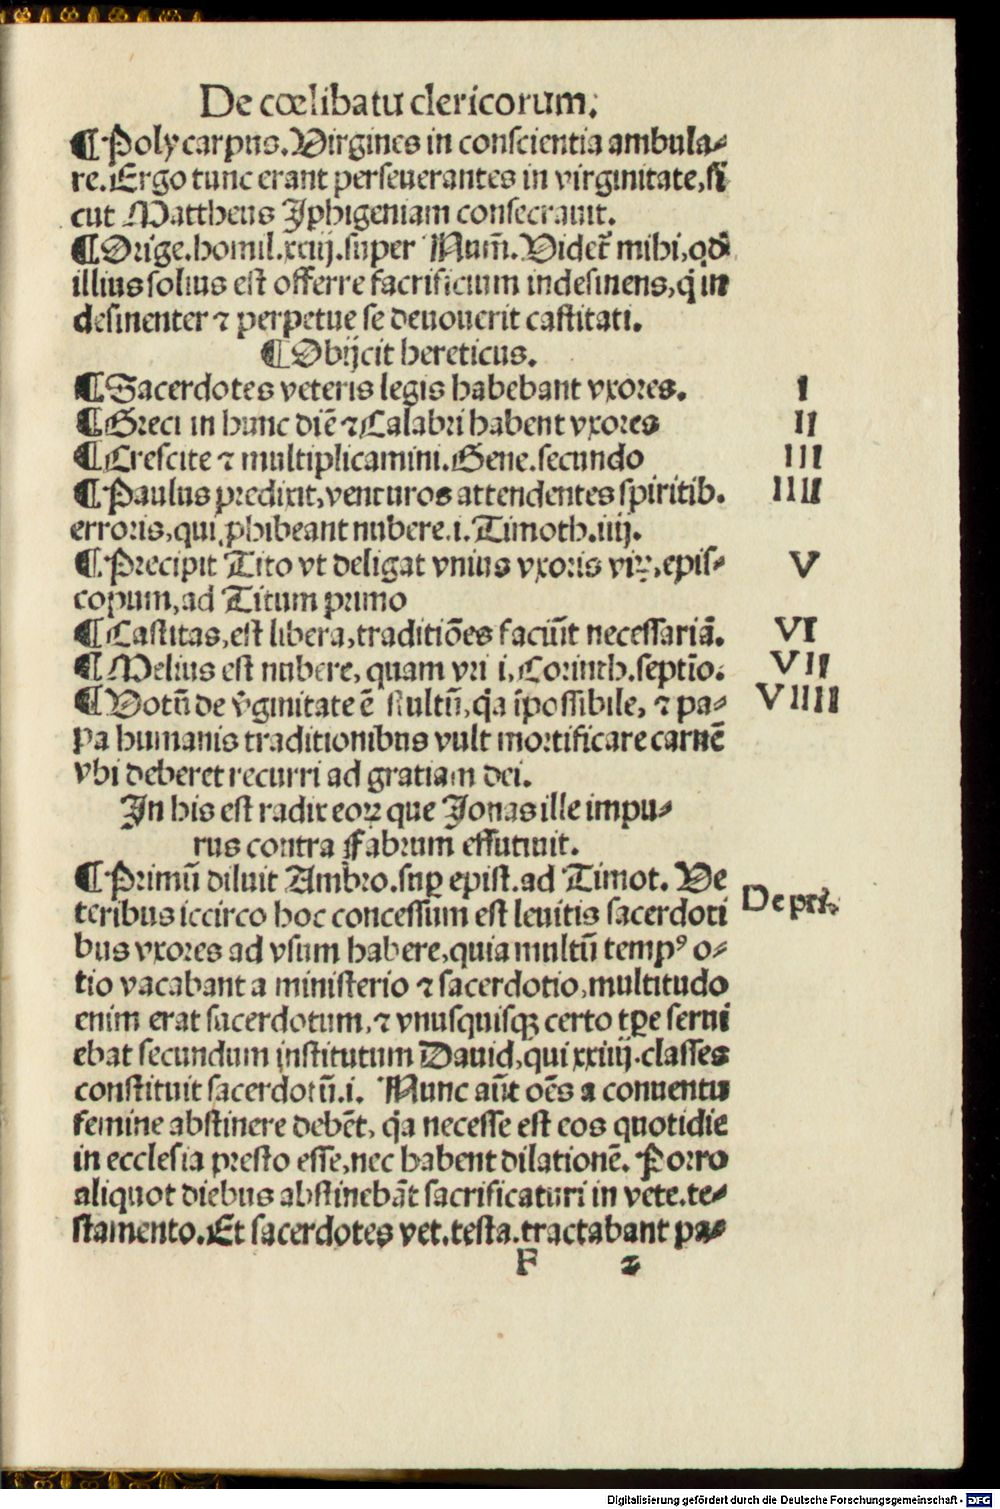 De cœlibatu clericorum.
¶ Polycarpus. Virgines in conscientia ambula⸗
re. Ergo tunc erant perseuerantes in virginitate, si
cut Mattheus Iphigeniam consecrauit.
¶ Orige. homil. xxiij. super Num̄. Videt᷑ mihi, qd̕
illius solius est offerre sacrificium indesinens, q̇ in
desinenter ⁊ perpetue se deuouerit castitati.
¶ Obijcit hereticus.
¶ Sacerdotes veteris legis habebant vxores. I
¶ Greci in hunc diē ⁊ Calabri habent vxores II
¶ Crescite ⁊ multiplicamini. Gene. secundo III
¶ Paulus predixit, venturos attendentes spiritib. IIII
erroris, qui ꝓhibeant nubere. i. Timoth. iiij.
¶ Precipit Tito vt deligat vnius vxoris viꝝ, epis⸗ V
copum, ad Titum primo
¶ Castitas, est libera, traditiōes faciūt necessariā. VI
¶ Melius est nubere, quam vri i. Corinth. septīo. VII
¶ Votū de v̄ginitate ē stultū, q̇a īpossibile, ⁊ pa⸗ VIIII
pa humanis traditionibus vult mortificare carnē
vbi deberet recurri ad gratiam dei.
In his est radix eoꝝ que Jonas ille impu⸗
rus contra Fabrum effutiuit.
¶ Primū diluit Ambro. suꝑ epist. ad Timot. Ve
teribus iccirco hoc concessum est leuitis sacerdoti De pri.
bus vxores ad vsum habere, quia multū tempꝰ o⸗
tio vacabant a ministerio ⁊ sacerdotio, multitudo
enim erat sacerdotum, ⁊ vnusquisqꝫ certo tꝑe serui
ebat secundum institutum Dauid, qui xxiiij. classes
constituit sacerdotū. i. Nunc aūt oēs a conuentu
femine abstinere debēt, q̇a necesse est eos quotidie
in ecclesia presto esse, nec habent dilationē. Porro
aliquot diebus abstinebāt sacrificaturi in vete. te⸗
stamento. Et sacerdotes vet. testa. tractabant pa⸗
F 2
Digitalisierung gefördert durch die Deutsche Forschungsgemeinschaft - DFG